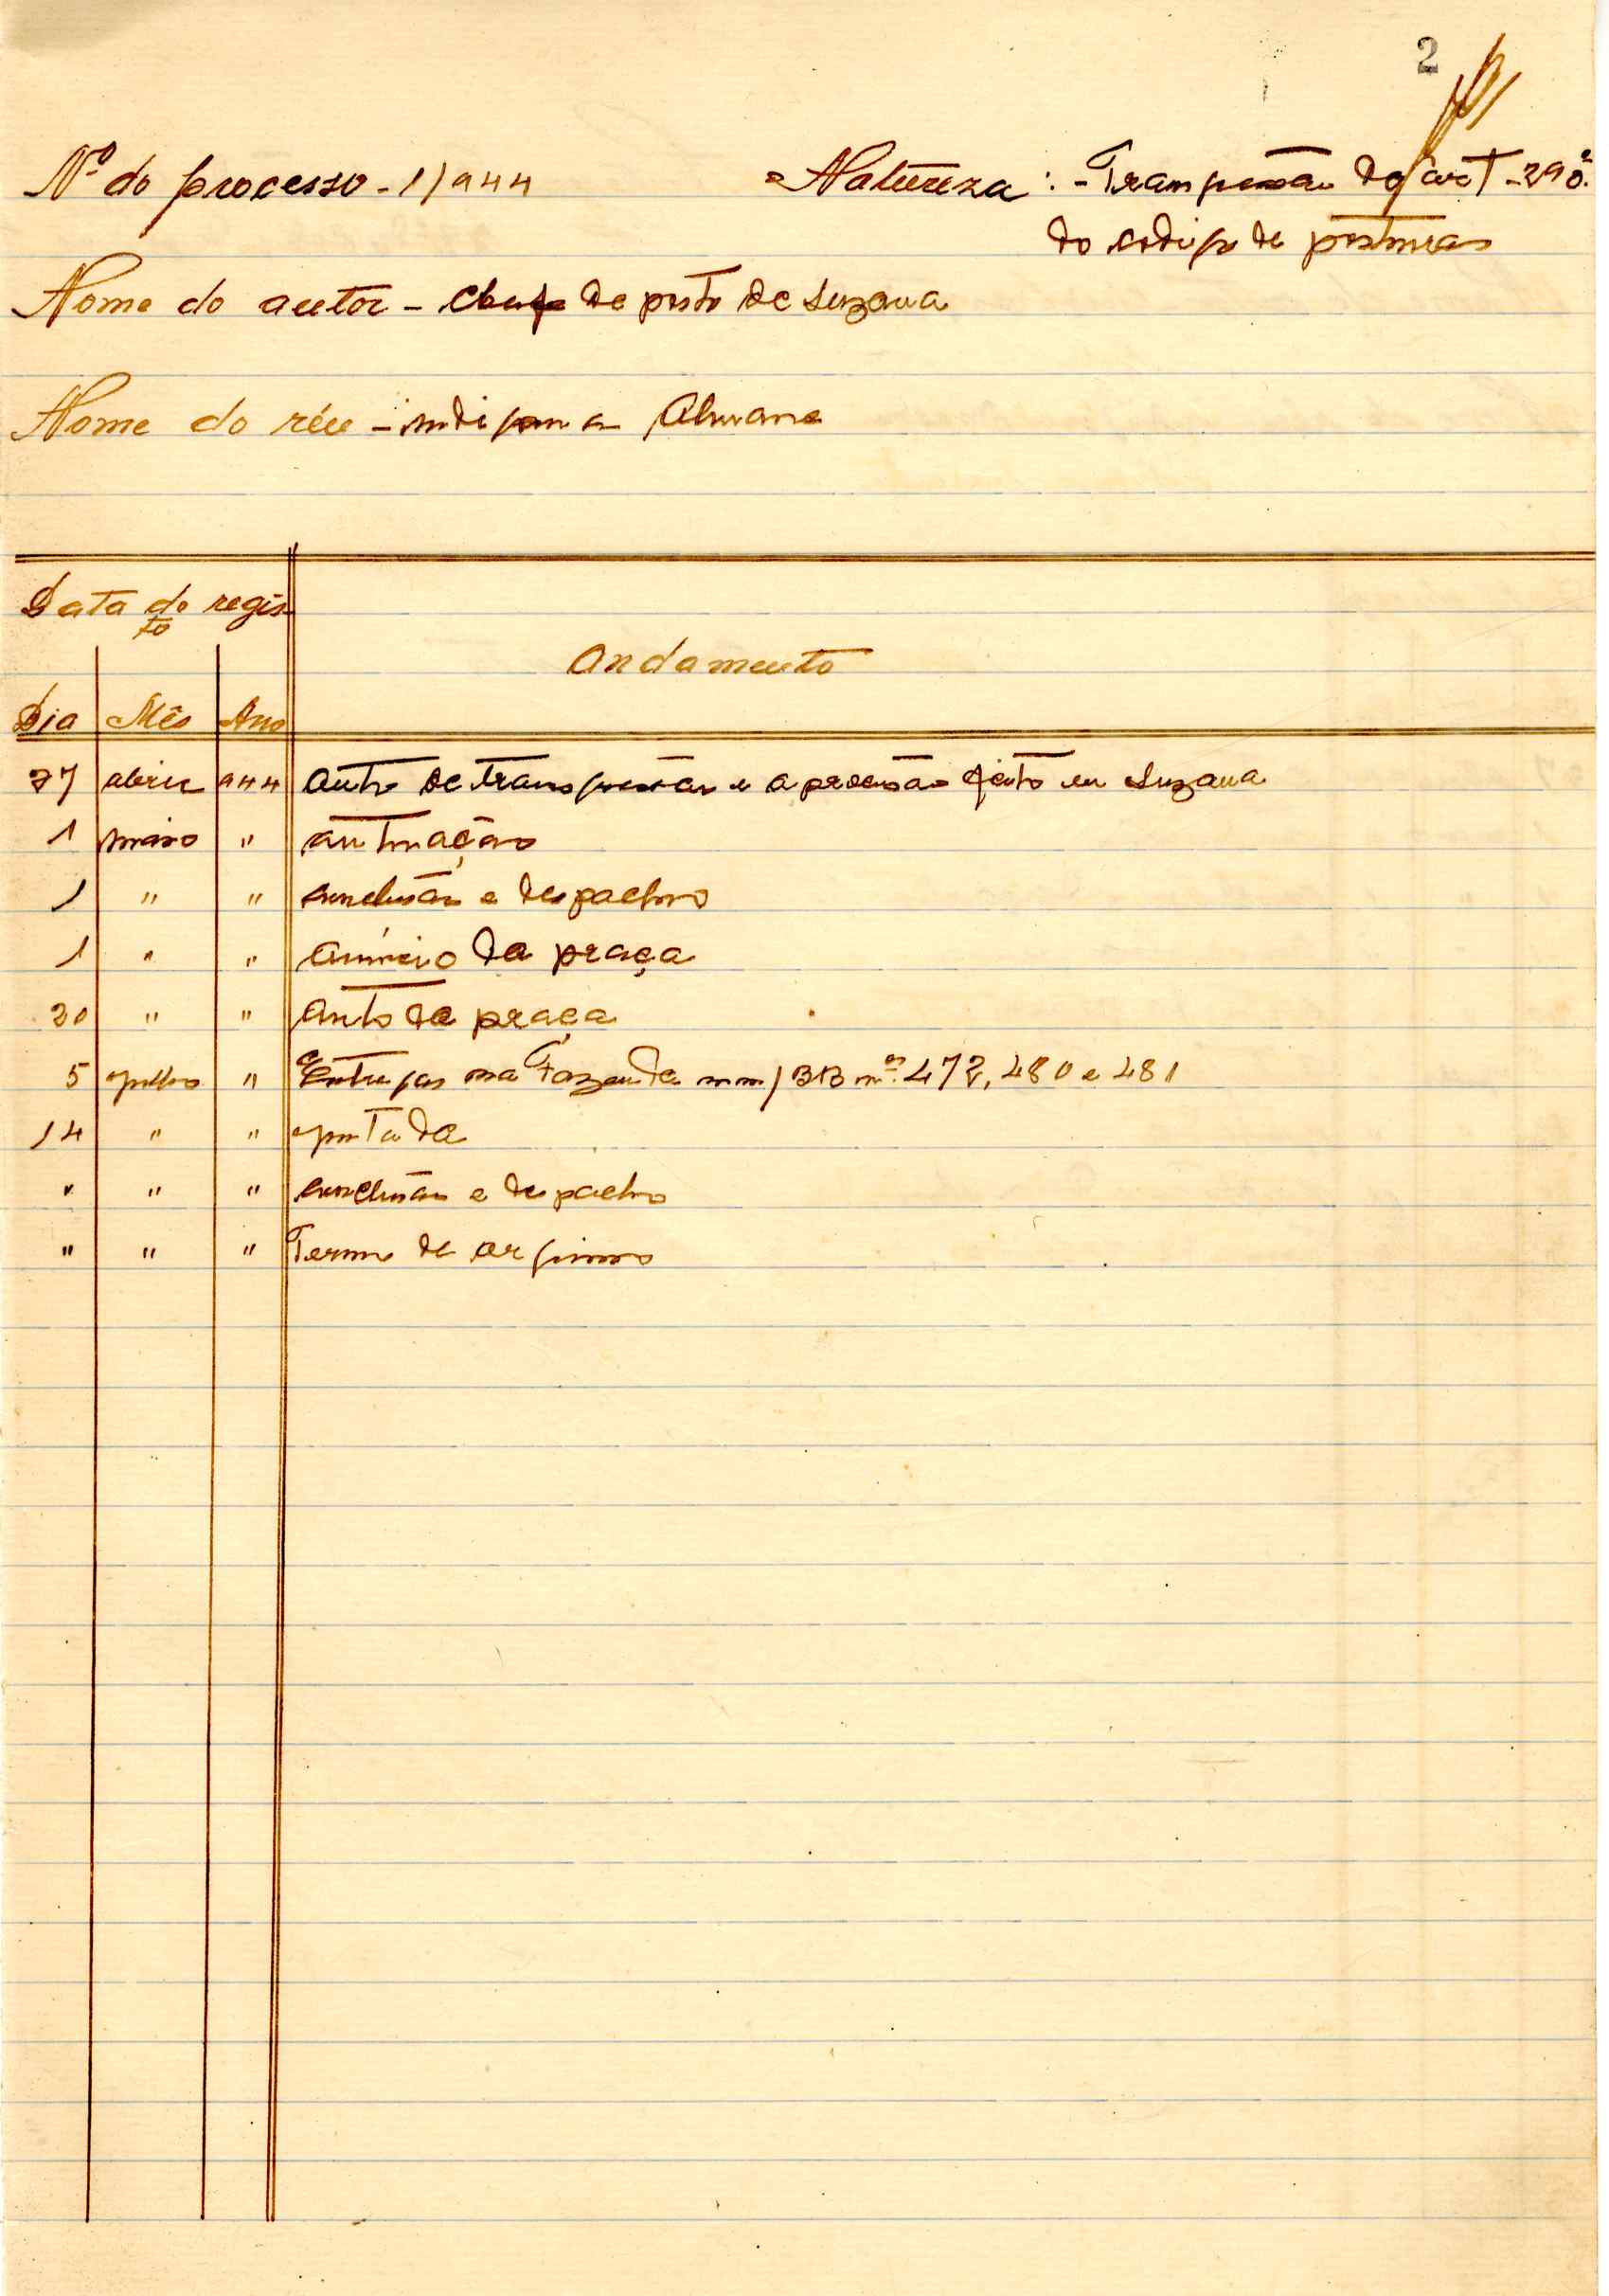 2
Nº do processo - 1/944
Natureza: - Transgressão do art - 29º.
do codigo de posturas
Nome do autor - Chefe de posto de Suzana
Nome do réu - indigena
Data do regis
to
Andamento
Dia Mês Ano
27 abril 944 Auto de transgressão e apreensão feito em Suzana
1 maio " autuação
1 " " conclusão e despacho
1 " " anúncio da praça
20 " " Auto da praça
5 julho " Entregas na Fazenda BB nºs 472, 480 e 481
14 " " juntada
" " " conclusão e despacho
" " " Termo de arquivo